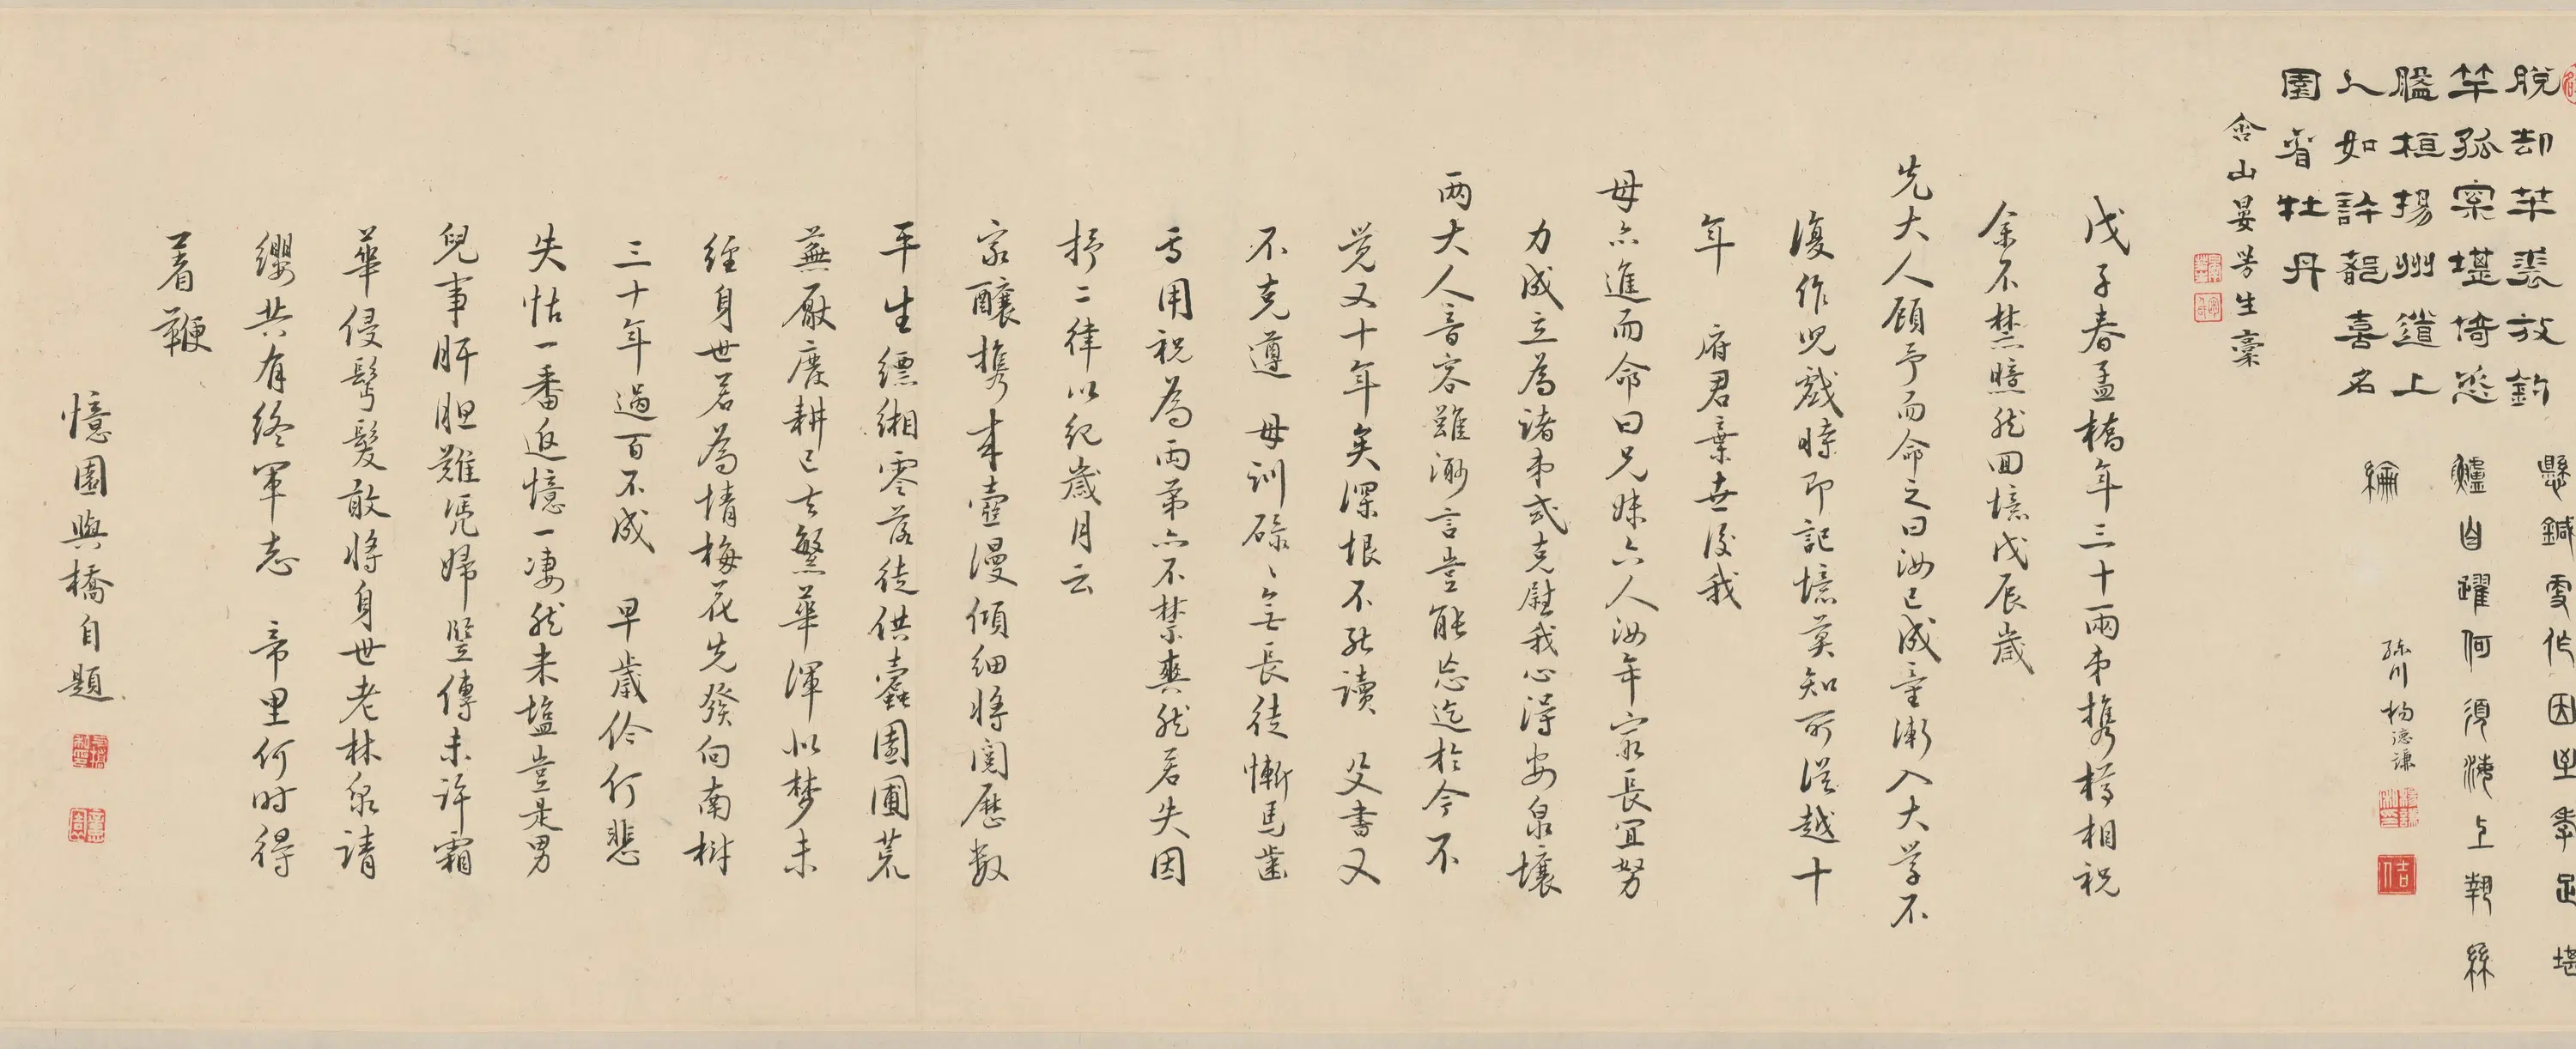 脫却苹裘放釣
竿孤窠堪倚丞
膃桓揚州道上
人如許韶喜名
園看牡丹
舍山晏芳生稾
鱸自躍何須海上掣絲
綸
孫川楊德謙
戊子春孟橋年三十兩弟攜樽相祝
余不禁曀然回憶戊辰歲
先大人顧予而命之曰汝已成童漸入大學不
復作兒戲時即記憶莫知所從越十
年 府君棄世後我
母亦進而命曰兄妹六人汝年最長宜努
力成立為諸弟式克慰我心淂安泉壤
兩大人音容雖渺言豈能忘迄於今不
覺又十年矣深恨不能讀 父書又
不克遵 母訓碌〻無長徒慚馬齒
奚用祝為兩弟亦不禁爽然若失因
抒二律以紀歲月云
家釀攜來壺漫傾細將閱歷數
平生縹緗零落徒供蠹園圃荒
蕪厭廢耕已去繁華渾似夢未
經身世若為情梅花先發向南樹
三十年過百不成 早歲伶仃悲
失怙一番追憶一淒然未塩豈是男
兒事肝胆難凭婦豎傳未許霜
華侵髩髮敢將身世老林泉請
纓共有終軍志 帝里何时得
著鞭
憶園與橋自題